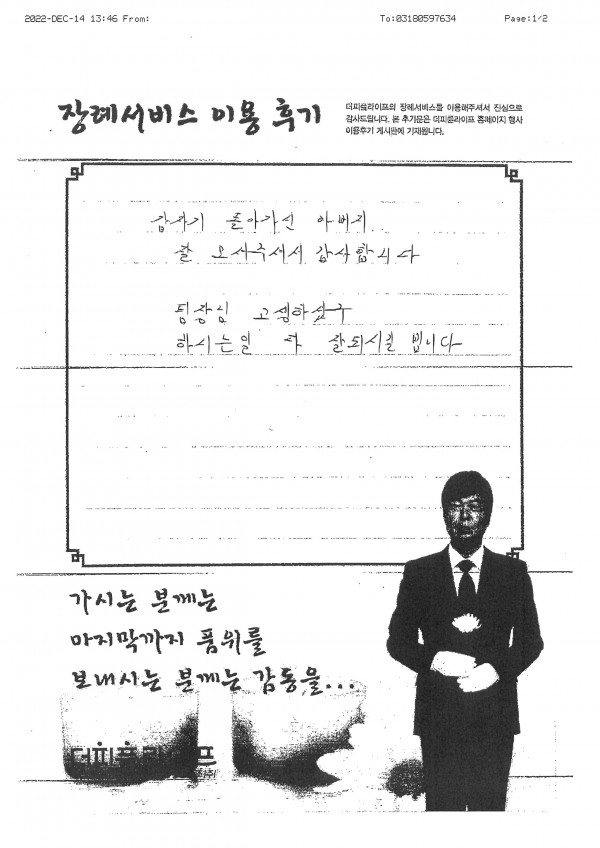 2022-DEC-14 13:46 From: To:03180597634 Page:1/2
장례서비스 이용 후기
더피플라이프의 장례서비스를 이용해주셔서 진심으로
감사드립니다. 본 후기문은 더피플라이프 홈페이지 행사
이용후기 게시판에 기재됩니다.
갑자기 돌아가신 아버지
잘 모셔주셔서 감사합니다
팀장님 고생하셨구
하시는일 다 잘되시길 빕니다
가시는 분께는
마지막까지 품위를
보내시는 분께는 감동을...
더피플라이프